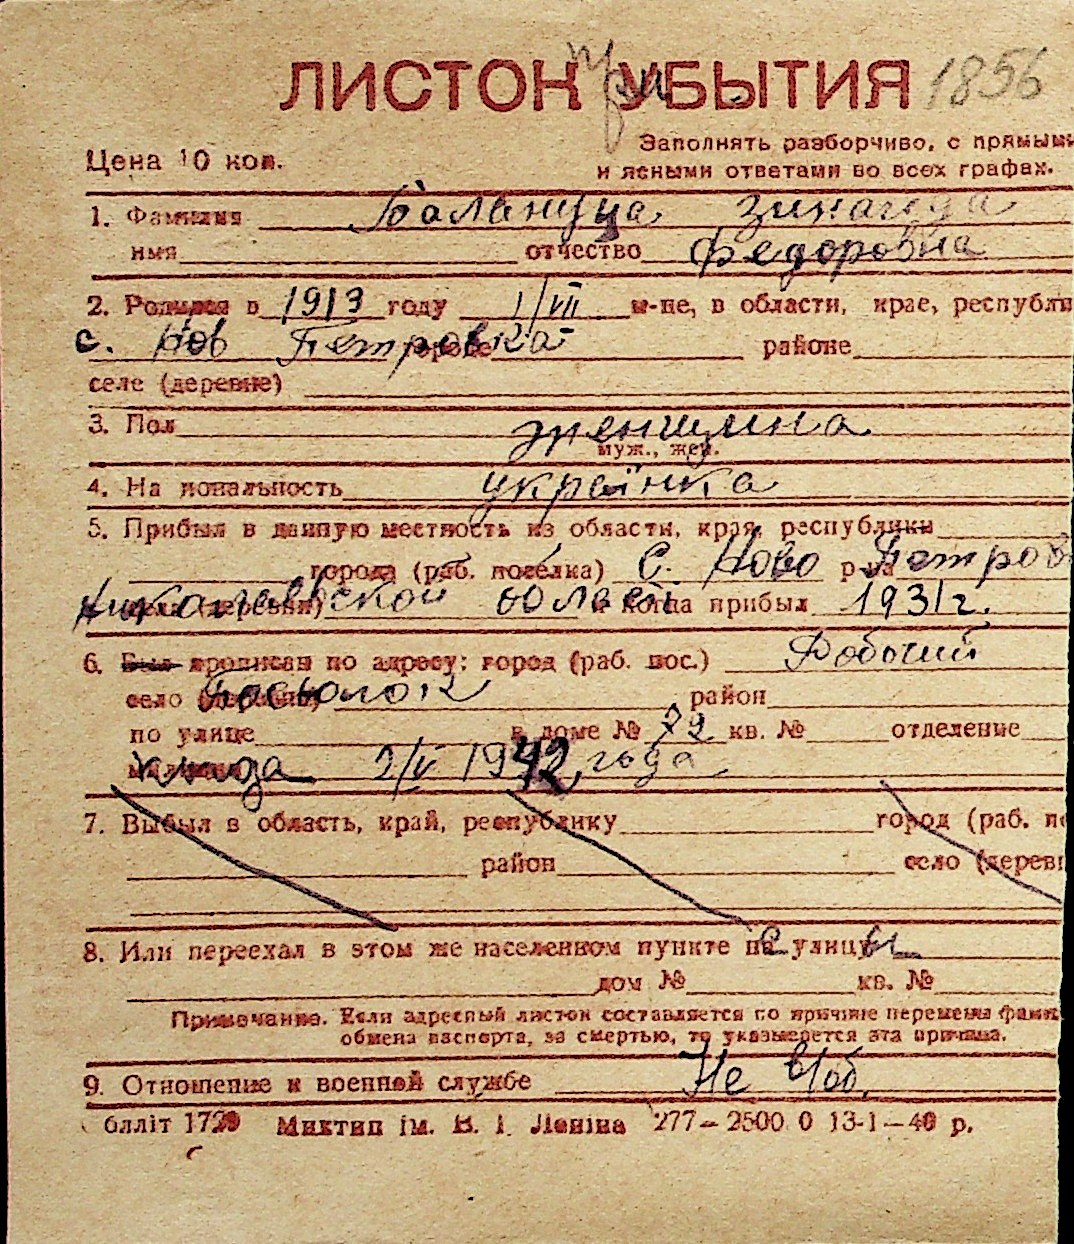 ЛИСТОК УБЫТИЯ 1856
Заполнять разборчиво, с прямыми
Цена 10 коп. и ясными ответами во всех графах.
1. Фамилия Балануца Зинаида
имя отчество Федоровна
2. Родился в 1913 году 1/VII м-це, в области, крае, республи
с. Нов Петровка районе
селе (деревне)
3. Пол женщина
муж., жен.
4. На иональность українка
5. Прибыл в данную местность из области, края, республики
города (раб. поселка) С. Ново р-на Петров
Николаевской област и когда прибыл 1931 г.
6. Был прописан по адресу: город (раб. пос.) Робочий
село Посьолок район
по улице в доме № 29 кв. № отделение
2/V 1942 года
7. Выбыл в область, край, республику город (раб. по
район село (дерев
8. Или переехал в этом же населенном пункте с улицы
дом № кв. №
Примечание. Если адресный листок составляется по причине перемены фами
обмена паспорта, за смертью, то указывается эта причина.
9. Отношение к военной службе Не в/об.
блліт 1729 Миктип ім. В. І. Леніна 277—2500 0 13-1—40 р.